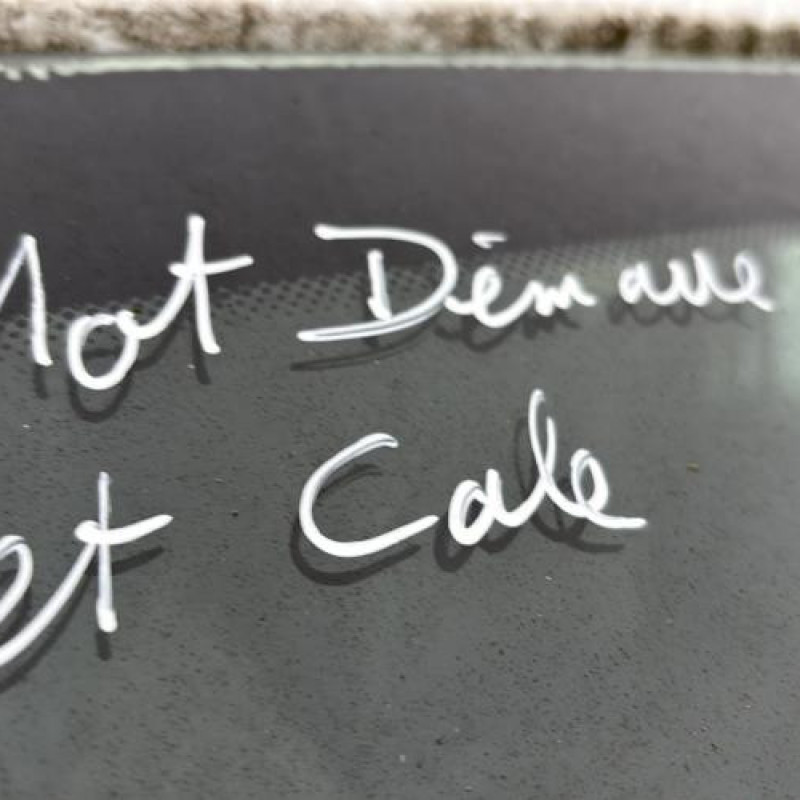 Mot Démarre
et Cale